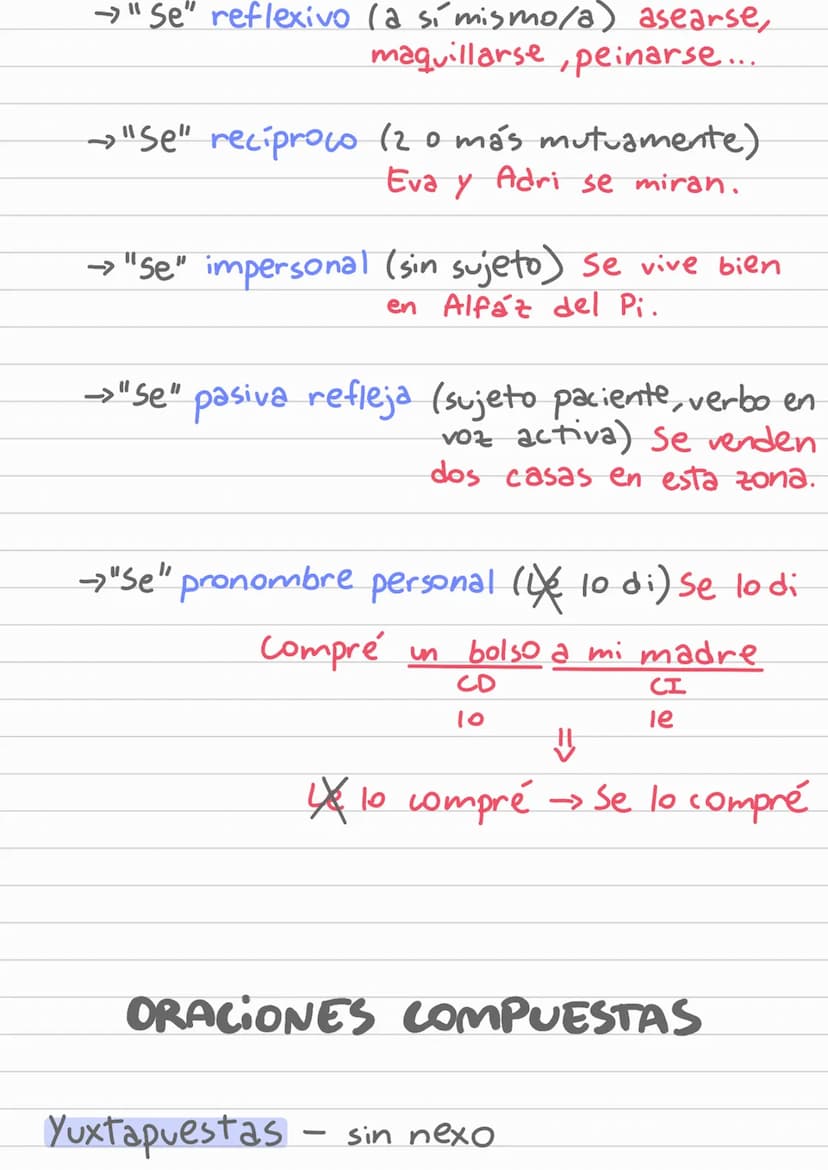 → "Se" reflexivo (a sí mismo/a) asearse,
maquillarse, peinarse...
→ "Se" recíproco (2 o más mutuamente)
Eva y Adri se miran.
→ "Se" impersonal (sin sujeto) Se vive bien
en Alfáz del Pi.
→ "Se" pasiva refleja (sujeto paciente, verbo en
voz activa) Se venden
dos casas en esta zona.
→ "Se" pronombre personal (Le lo di) Se lo di
Compré un bolso a mi madre
CD CI
lo le
⇓
Le lo compré → Se lo compré
ORACIONES COMPUESTAS
Yuxtapuestas – sin nexo